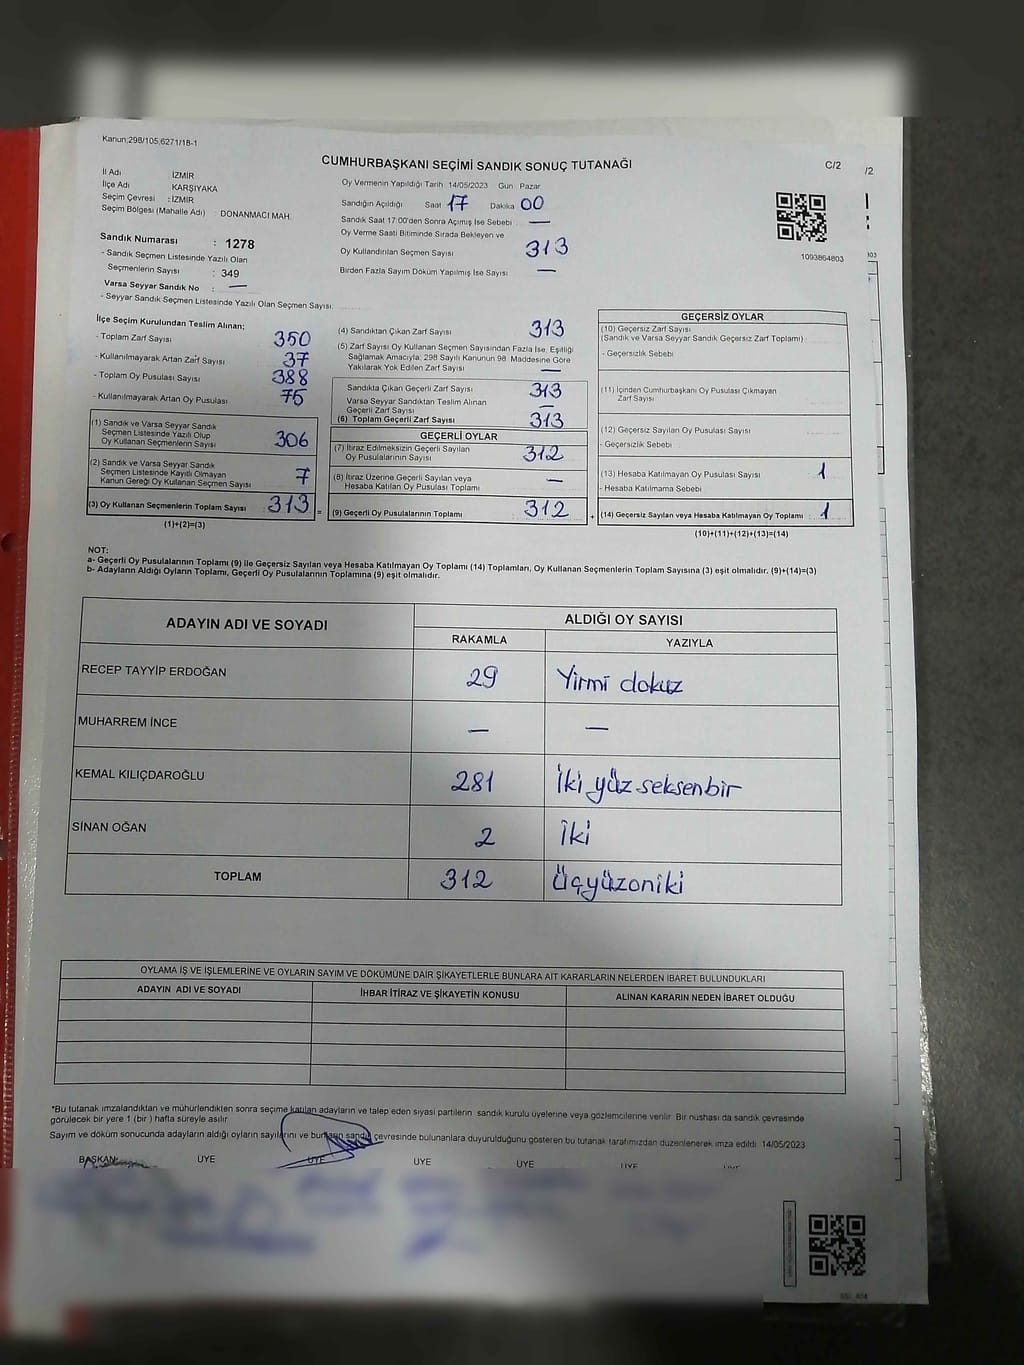 Kanun;298/105,6271/18-1
CUMHURBAŞKANI SEÇİMİ SANDIK SONUÇ TUTANAĞI
C/2
/2
İl Adı İZMİR
İlçe Adı KARŞIYAKA
Seçim Çevresi : İZMİR
Seçim Bölgesi (Mahalle Adı) : DONANMACI MAH.
Oy Vermenin Yapıldığı Tarih 14/05/2023 Gün Pazar
Sandığın Açıldığı Saat 17 Dakika 00
Sandık Saat 17:00'den Sonra Açımış İse Sebebi : —
Oy Verme Saati Bitiminde Sırada Bekleyen ve
Oy Kullandırılan Seçmen Sayısı 313
Birden Fazla Sayım Döküm Yapılmış İse Sayısı —
1093864803
Sandık Numarası : 1278
- Sandık Seçmen Listesinde Yazılı Olan
Seçmenlerin Sayısı : 349
Varsa Seyyar Sandık No : —
- Seyyar Sandık Seçmen Listesinde Yazılı Olan Seçmen Sayısı:
İlçe Seçim Kurulundan Teslim Alınan;
- Toplam Zarf Sayısı 350
- Kullanılmayarak Artan Zarf Sayısı 37
- Toplam Oy Pusulası Sayısı 388
- Kullanılmayarak Artan Oy Pusulası 75
(1) Sandık ve Varsa Seyyar Sandık
Seçmen Listesinde Yazılı Olup
Oy Kullanan Seçmenlerin Sayısı 306
(2) Sandık ve Varsa Seyyar Sandık
Seçmen Listesinde Kayıtlı Olmayan
Kanun Gereği Oy Kullanan Seçmen Sayısı 7
(3) Oy Kullanan Seçmenlerin Toplam Sayısı 313 =
(1)+(2)=(3)
(4) Sandıktan Çıkan Zarf Sayısı 313
(5) Zarf Sayısı Oy Kullanan Seçmen Sayısından Fazla İse, Eşitliği
Sağlamak Amacıyla; 298 Sayılı Kanunun 98. Maddesine Göre
Yakılarak Yok Edilen Zarf Sayısı —
Sandıkta Çıkan Geçerli Zarf Sayısı 313
Varsa Seyyar Sandıktan Teslim Alınan
Geçerli Zarf Sayısı —
(6) Toplam Geçerli Zarf Sayısı 313
GEÇERLİ OYLAR
(7) İtiraz Edilmeksizin Geçerli Sayılan
Oy Pusulalarının Sayısı 312
(8) İtiraz Üzerine Geçerli Sayılan veya
Hesaba Katılan Oy Pusulası Toplamı —
(9) Geçerli Oy Pusulalarının Toplamı 312 +
GEÇERSİZ OYLAR
(10) Geçersiz Zarf Sayısı
(Sandık ve Varsa Seyyar Sandık Geçersiz Zarf Toplamı)
- Geçersizlik Sebebi
(11) İçinden Cumhurbaşkanı Oy Pusulası Çıkmayan
Zarf Sayısı
(12) Geçersiz Sayılan Oy Pusulası Sayısı
- Geçersizlik Sebebi
(13) Hesaba Katılmayan Oy Pusulası Sayısı 1
- Hesaba Katılmama Sebebi
(14) Geçersiz Sayılan veya Hesaba Katılmayan Oy Toplamı 1
(10)+(11)+(12)+(13)=(14)
NOT:
a- Geçerli Oy Pusulalarının Toplamı (9) ile Geçersiz Sayılan veya Hesaba Katılmayan Oy Toplamı (14) Toplamları, Oy Kullanan Seçmenlerin Toplam Sayısına (3) eşit olmalıdır. (9)+(14)=(3)
b- Adayların Aldığı Oyların Toplamı, Geçerli Oy Pusulalarının Toplamına (9) eşit olmalıdır.
ADAYIN ADI VE SOYADI ALDIĞI OY SAYISI
RAKAMLA YAZIYLA
RECEP TAYYİP ERDOĞAN 29 Yirmi dokuz
MUHARREM İNCE — —
KEMAL KILIÇDAROĞLU 281 İki yüz seksenbir
SİNAN OĞAN 2 İki
TOPLAM 312 Üçyüzoniki
OYLAMA İŞ VE İŞLEMLERİNE VE OYLARIN SAYIM VE DÖKÜMÜNE DAİR ŞİKAYETLERLE BUNLARA AİT KARARLARIN NELERDEN İBARET BULUNDUKLARI
ADAYIN ADI VE SOYADI İHBAR İTİRAZ VE ŞİKAYETİN KONUSU ALINAN KARARIN NEDEN İBARET OLDUĞU
*Bu tutanak imzalandıktan ve mühürlendikten sonra seçime katılan adayların ve talep eden siyasi partilerin sandık kurulu üyelerine veya gözlemcilerine verilir. Bir nüshası da sandık çevresinde
görülecek bir yere 1 (bir) hafta süreyle asılır
Sayım ve döküm sonucunda adayların aldığı oyların sayılarını ve bunların sandık çevresinde bulunanlara duyurulduğunu gösteren bu tutanak tarafımızdan düzenlenerek imza edildi. 14/05/2023
BAŞKAN ÜYE ÜYE ÜYE ÜYE ÜYE